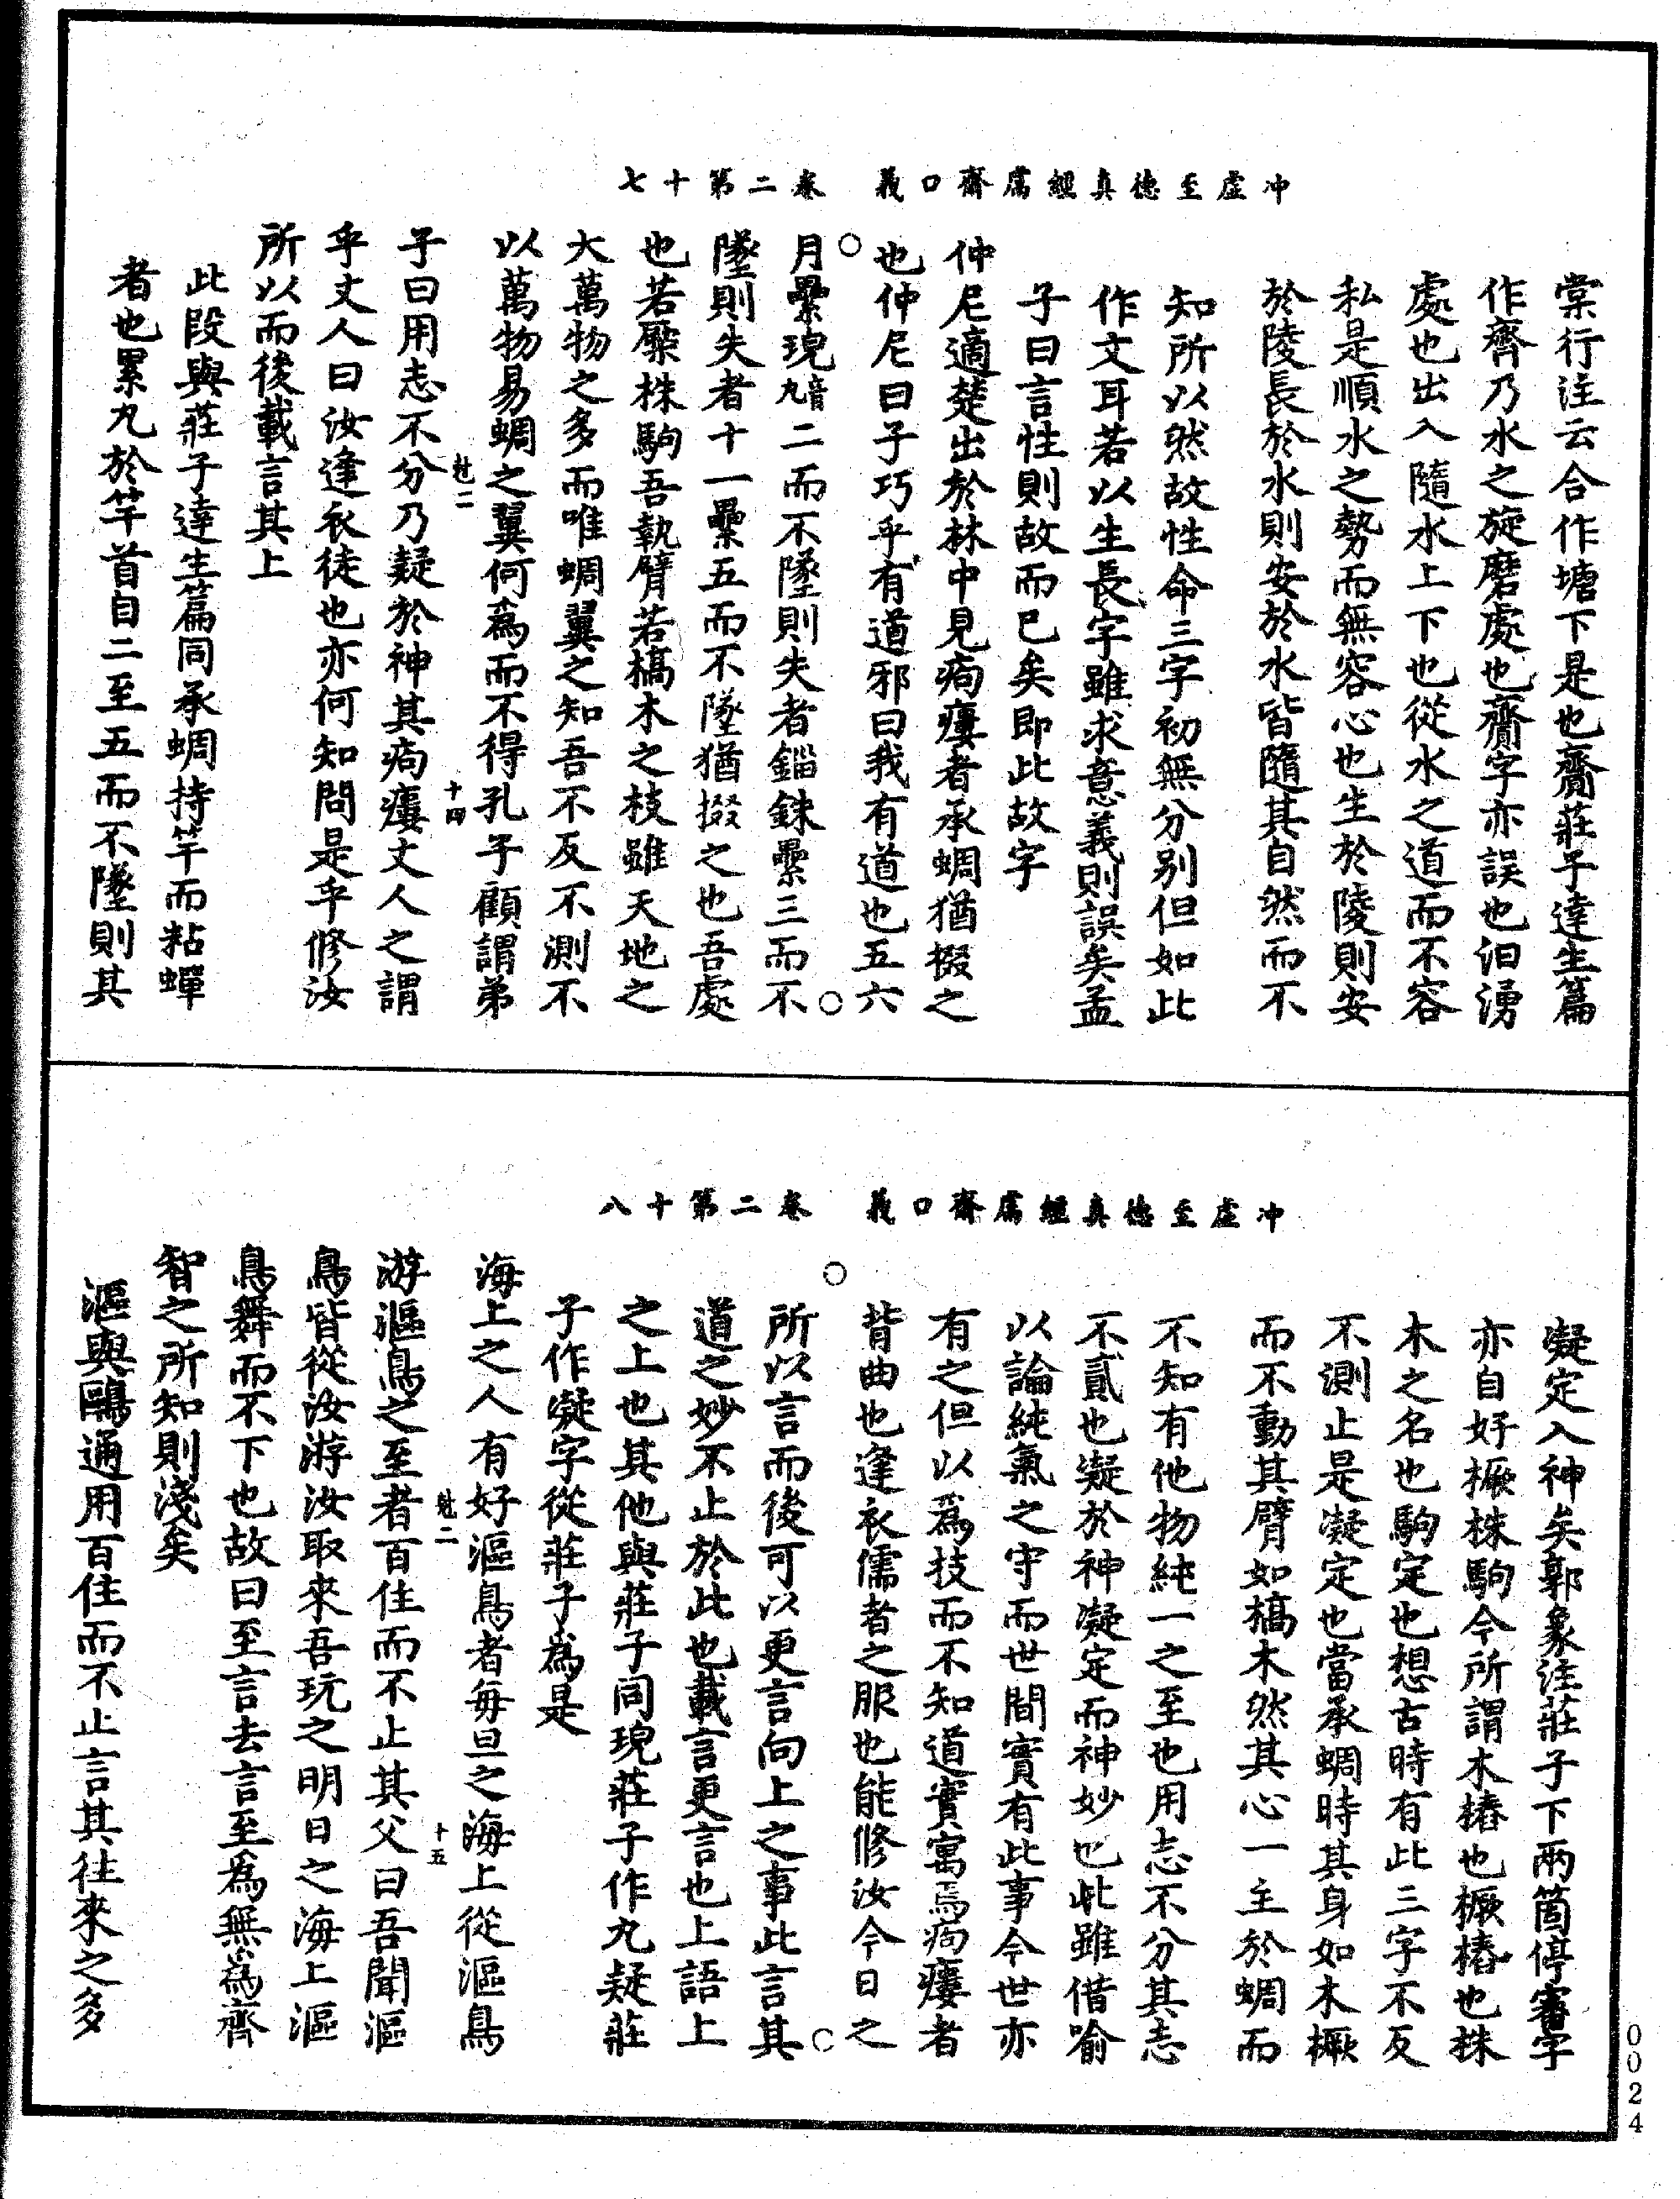 冲虛至德真經鬳齋口義　卷二第十七
棠行注云合作塘下是也齎莊子達生篇
作齊乃水之旋磨處也齎字亦誤也汩湧
處也出入隨水上下也從水之道而不容
私是順水之勢而無容心也生於陵則安
於陵長於水則安於水皆隨其自然而不
知所以然故性命三字初無分别但如此
作文耳若以生長字雖求意義則誤矣孟
子曰言性則故而已矣即此故字
仲尼適楚出於林中見痀瘻者承蜩猶掇之
也仲尼曰子巧乎有道邪曰我有道也五六
月纍垸音丸二而不墜則失者錙銖纍三而不
墜則失者十一纍五而不墜猶掇之也吾處
也若橜株駒吾執臂若槁木之枝雖天地之
大萬物之多而唯蜩翼之知吾不反不測不
以萬物易蜩之翼何爲而不得孔子顧謂弟
尅二　十四
子曰用志不分乃疑於神其痀瘻丈人之謂
乎丈人曰汝逢衣徒也亦何知問是乎修汝
所以而後載言其上
此段與莊子達生篇同承蜩持竿而粘蟬
者也累丸於竿首自二至五而不墜則其
冲虛至德真經鬳齋口義　卷二第十八
凝定入神矣郭象注莊子下兩箇停審字
亦自好橛株駒今所謂木樁也橛樁也株
木之名也駒定也想古時有此三字不反
不測止是凝定也當承蜩時其身如木橛
而不動其臂如槁木然其心一主於蜩而
不知有他物純一之至也用志不分其志
不貳也凝於神凝定而神妙也此雖借喻
以論純氣之守而世間實有此事今世亦
有之但以爲技而不知道實寓焉痀瘻者
背曲也逢衣儒者之服也能修汝今日之
所以言而後可以更言向上之事此言其
道之妙不止於此也載言更言也上語上
之上也其他與莊子同垸莊子作丸疑莊
子作凝字從莊子爲是
海上之人有好漚鳥者每旦之海上從漚鳥
尅二　十五
游漚鳥之至者百住而不止其父曰吾聞漚
鳥皆從汝游汝取來吾玩之明日之海上漚
鳥舞而不下也故曰至言去言至爲無爲齊
智之所知則淺矣
漚與鷗通用百住而不止言其往來之多
0024